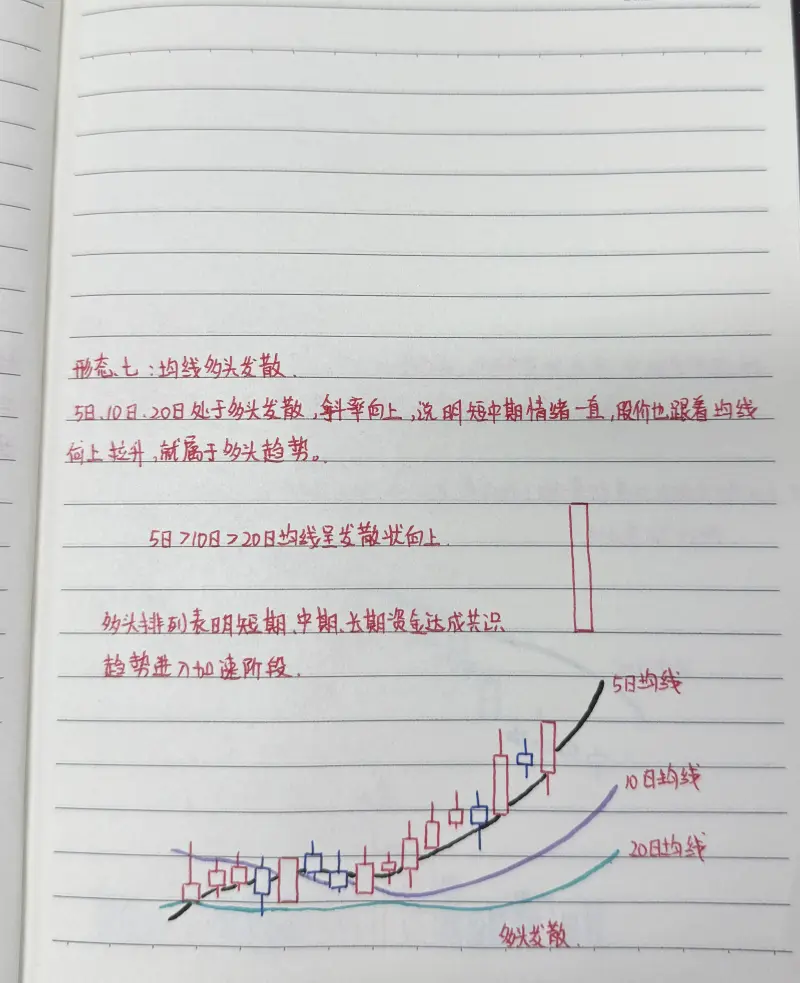 形态七:均线多头发散.
5日、10日、20日处于多头发散,斜率向上,说明短中期情绪一直,股价也跟着均线
向上拉升,就属于多头趋势。
5日>10日>20日均线呈发散状向上.
多头排列表明短期、中期、长期资金达成共识
趋势进入加速阶段.
5日均线
10日均线
20日均线
多头发散.